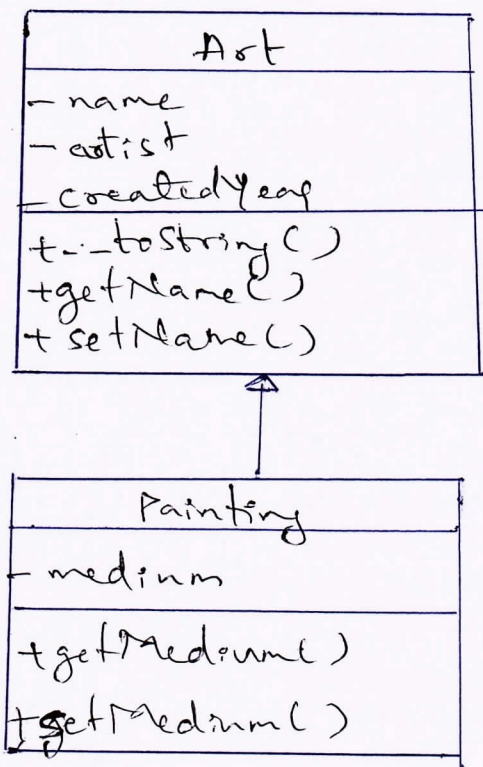 Art
- name
- artist
- createdYear
+ __toString()
+ getName()
+ setName()
Painting
- medium
+ getMedium()
+ setMedium()